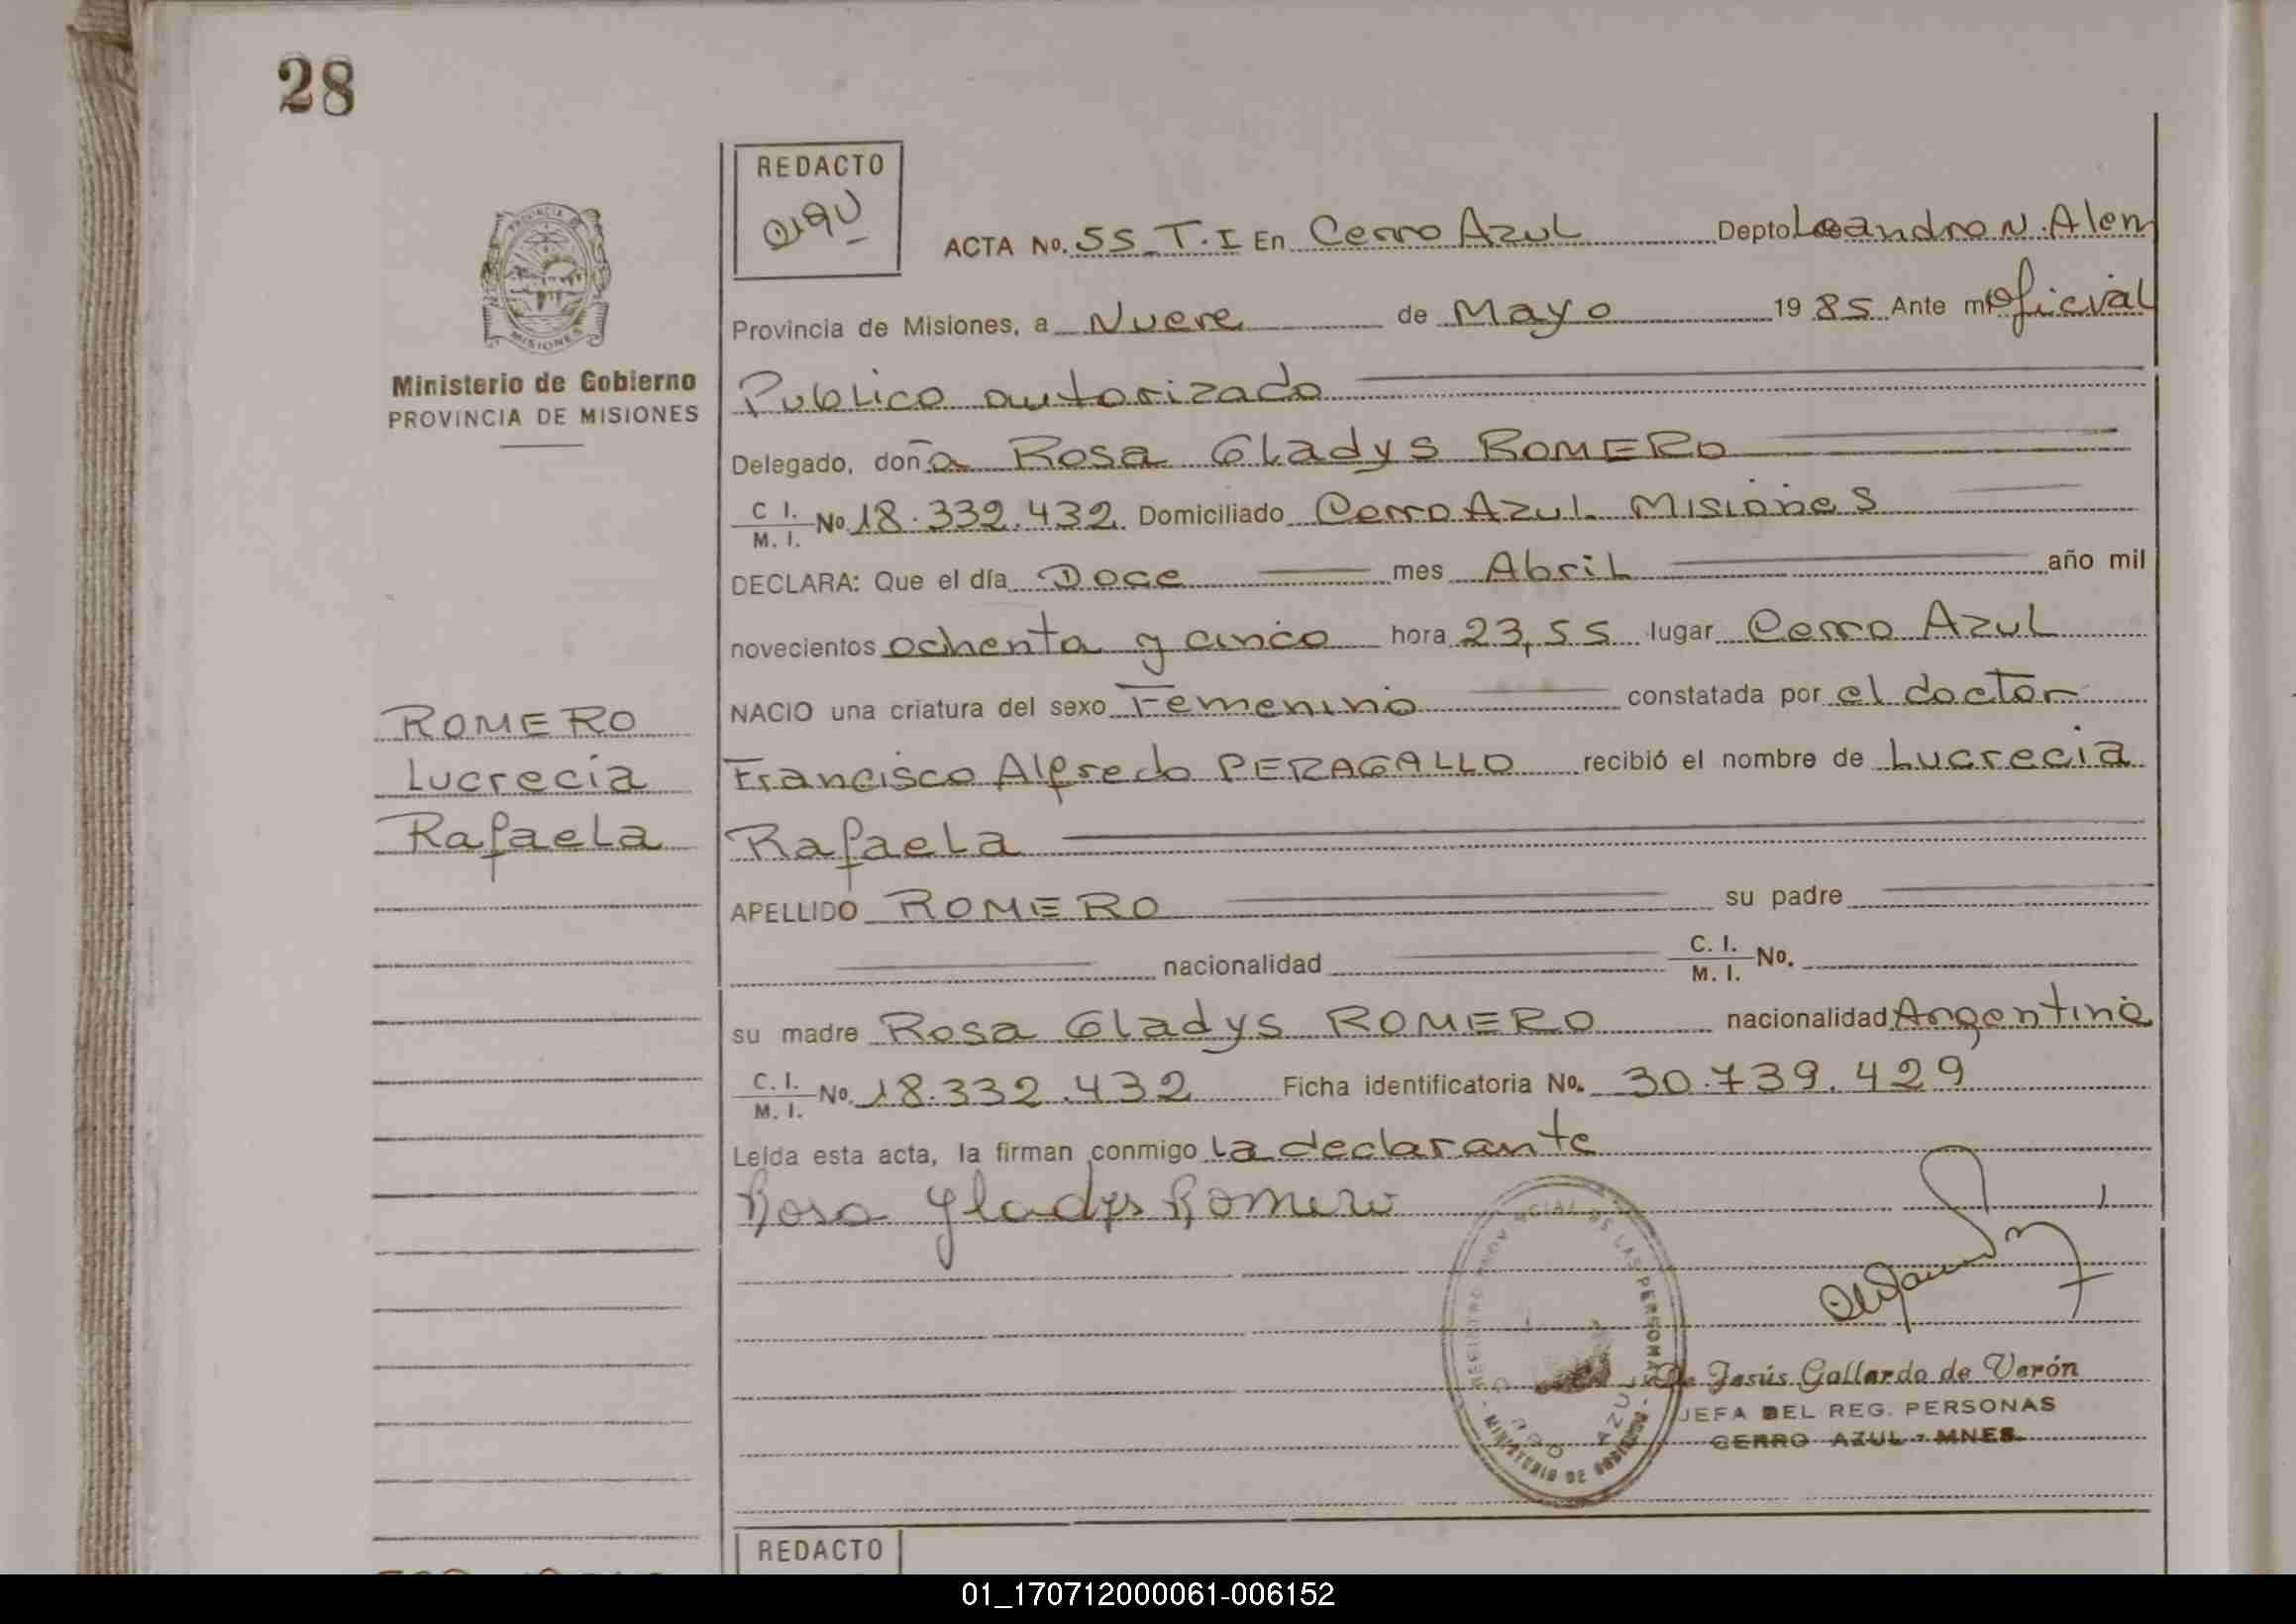 28
REDACTO
ACTA No. 55 T.I En Cerro Azul Depto Leandro N. Alem
Provincia de Misiones, a Nueve de Mayo 1985 Ante mi Oficial
Ministerio de Gobierno
PROVINCIA DE MISIONES
Publico autorizado
Delegado, doña Rosa Gladys ROMERO
C I. M. I. No 18.332.432 Domiciliado Cerro Azul Misiones
DECLARA: Que el día Doce mes Abril año mil
novecientos ochenta y cinco hora 23,55 lugar Cerro Azul
NACIO una criatura del sexo Femenino constatada por el doctor
ROMERO
Lucrecia
Rafaela
Francisco Alfredo PERAGALLO recibió el nombre de Lucrecia
Rafaela
APELLIDO ROMERO su padre
nacionalidad C. I. M. I. No.
su madre Rosa Gladys ROMERO nacionalidad Argentina
C. I. M. I. No. 18.332.432 Ficha identificatoria No. 30.739.429
Leida esta acta, la firman conmigo la declarante
Rosa Gladys Romero
MINISTERIO DE GOBIERNO
De Jesús Gallardo de Verón
JEFA DEL REG. PERSONAS
CERRO AZUL - MNES.
REDACTO
01_170712000061-006152